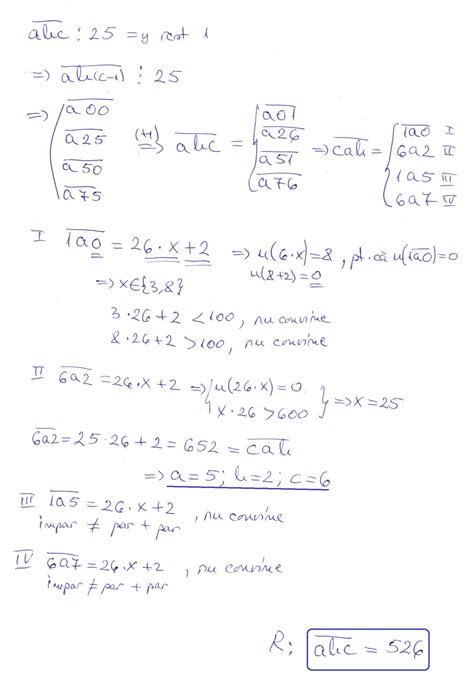 abc : 25 = y rest 1
⇒ ab(c-1) ⋮ 25
⇒ { a00, a25, a50, a75 (+1) ⇒ abc = { a01, a26, a51, a76 ⇒ cab = { 1a0 I, 6a2 II, 1a5 III, 6a7 IV
I 1a0 = 26·x+2 ⇒ u(6·x)=8, pt. că u(1a0)=0
u(8+2)=0
⇒ x∈{3,8}
3·26+2 < 100, nu convine
8·26+2 > 100, nu convine
II 6a2 = 26·x+2 ⇒ { u(26·x)=0
x·26 > 600 } ⇒ x=25
6a2 = 25·26+2 = 652 = cab
⇒ a=5; b=2; c=6
III 1a5 = 26·x+2, nu convine
impar ≠ par + par
IV 6a7 = 26·x+2, nu convine
impar ≠ par + par
R: abc = 526